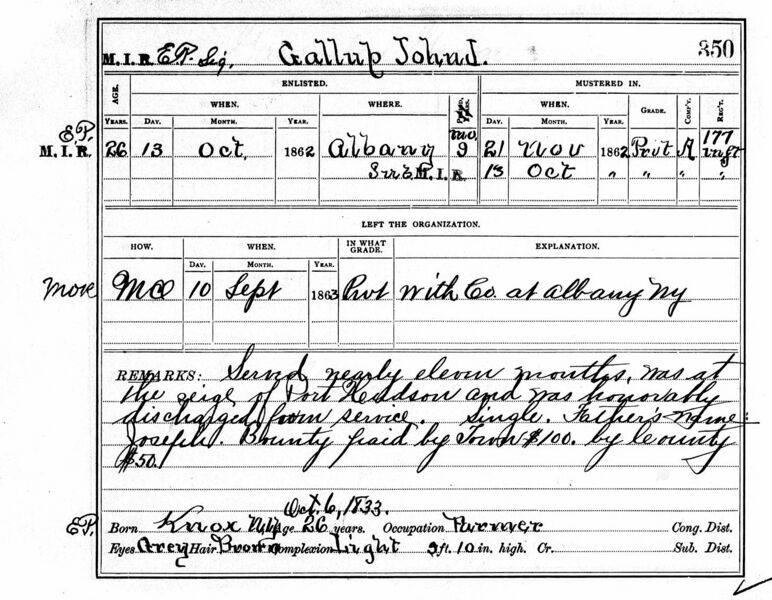 M. I. R. E.P. Sig. Gallup John J. 350
AGE. ENLISTED. MUSTERED IN.
WHEN. WHERE. WHEN. GRADE. COMP'Y. REG'T.
YEARS. DAY. MONTH. YEAR. DAY. MONTH. YEAR.
E.P. mo. 177
M. I. R. 26 13 Oct. 1862 Albany 9 21 Nov 1862 Prvt A Inft
M. I. R. 13 Oct " " " "
LEFT THE ORGANIZATION.
HOW. WHEN. IN WHAT GRADE. EXPLANATION.
DAY. MONTH. YEAR.
more MO 10 Sept 1863 Prvt With Co. at Albany NY
REMARKS: Served nearly eleven months, was at
the seige of Port Hudson and was honorably
discharged from service. Single. Father's name:
Joseph. Bounty paid by Town $100. by County
$50.
Oct. 6, 1833.
E.P. Born Knox N.Y. Age 26 years. Occupation Farmer Cong. Dist.
Eyes Grey Hair Brown Complexion Light 5 ft. 10 in. high. Cr. Sub. Dist.